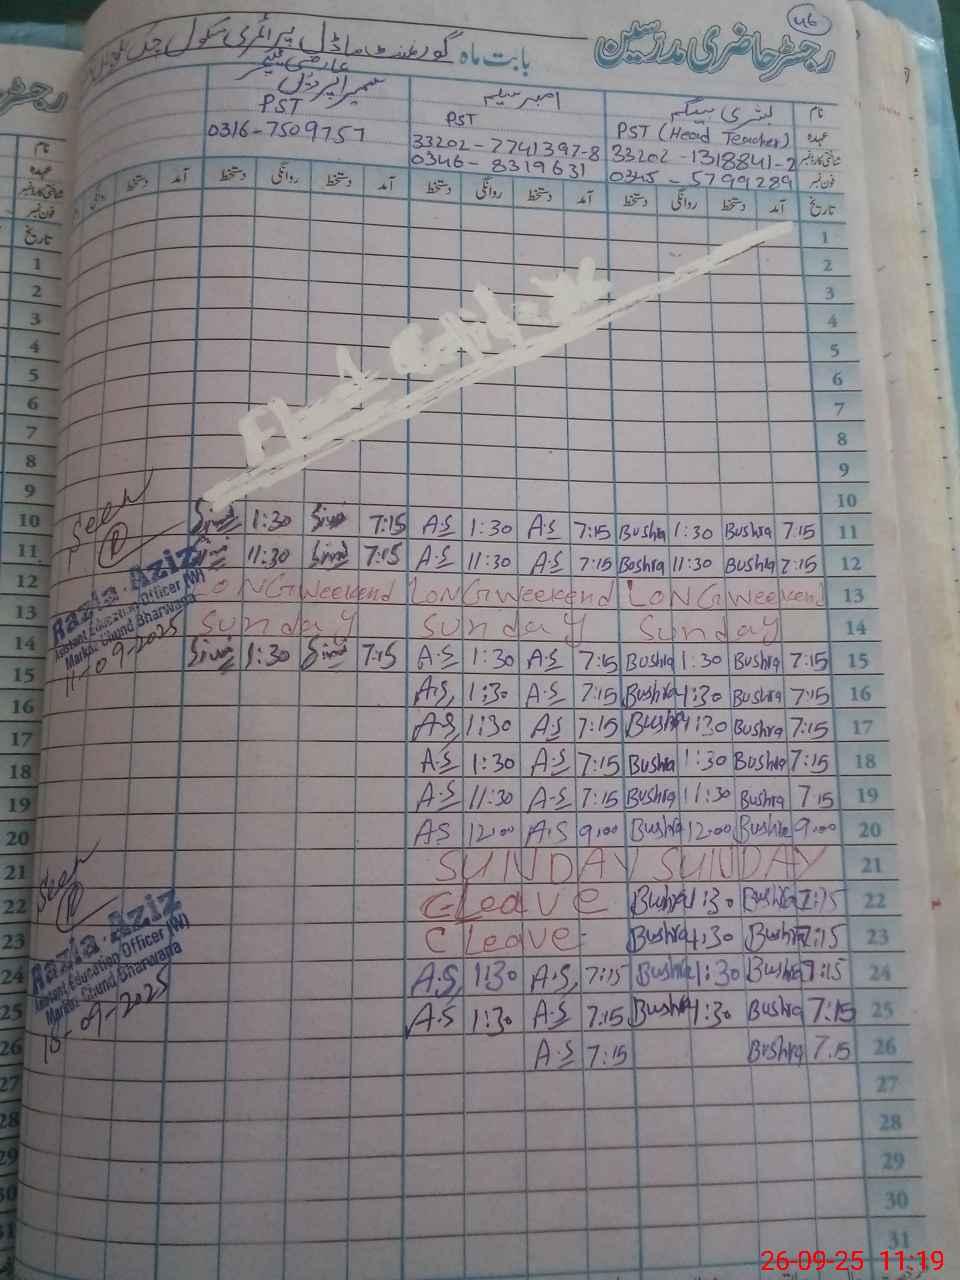 46
رجسٹر حاضری مدرسین بابت ماہ گورنمنٹ ماڈل پرائمری سکول چک
نام بشری بیگم امبر سلیم
عہدہ PST (Head Teacher) PST PST
شناختی کارڈ نمبر 33202-1318841-2 33202-7741397-8 0316-7509757
فون نمبر 0345-5799289 0346-8319631
تاریخ آمد دستخط روانگی دستخط آمد دستخط روانگی دستخط آمد دستخط روانگی دستخط آمد دستخط روانگی
1
2
3
4
5
6
7
8
9
10
Flood
1:30 7:15 A.S 1:30 A.S 7:15 Bushra 1:30 Bushra 7:15 11
11:30 7:15 A.S 11:30 A.S 7:15 Boshra 11:30 Bushra 7:15 12
LONG weekend LONG weekend LONG weekend 13
Sunday Sunday Sunday 14
1:30 7:15 A.S 1:30 A.S 7:15 Bushra 1:30 Bushra 7:15 15
A.S 1:30 A.S 7:15 Bushra 1:30 Bushra 7:15 16
A.S 1:30 A.S 7:15 Bushra 1:30 Bushra 7:15 17
A.S 1:30 A.S 7:15 Bushra 1:30 Bushra 7:15 18
A.S 11:30 A.S 7:15 Bushra 11:30 Bushra 7:15 19
A.S 12:00 A.S 9:00 Bushra 12:00 Bushra 9:00 20
SUNDAY SUNDAY 21
C Leave Bushra 1:30 Bushra 7:15 22
C Leave Bushra 1:30 Bushra 7:15 23
A.S 1:30 A.S 7:15 Bushra 1:30 Bushra 7:15 24
A.S 1:30 A.S 7:15 Bushra 1:30 Bushra 7:15 25
A.S 7:15 Bushra 7:15 26
27
28
29
30
31
Seen
Razia Aziz
Assistant Education Officer (W)
Markaz Chund Bharwana
11-09-2025
Seen
Razia Aziz
Assistant Education Officer (W)
Markaz Chund Bharwana
16-09-2025
رجسٹر
نام
عہدہ
شناختی کارڈ نمبر
فون نمبر
تاریخ
1
2
3
4
5
6
7
8
9
10
11
12
13
14
15
16
17
18
19
20
21
22
23
24
25
26
27
28
29
30
31
26-09-25 11:19